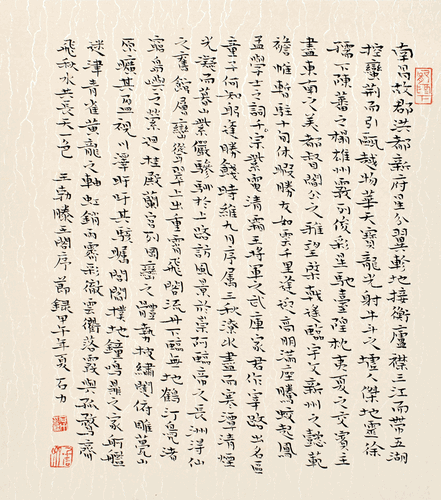 南昌故郡洪都新府星分翼軫地接衡廬襟三江而帶五湖
控蠻荊而引甌越物華天寶龍光射牛斗之墟人傑地靈徐
孺下陳蕃之榻雄州霧列俊彩星馳臺隍枕夷夏之交賓主
盡東南之美都督閻公之雅望棨戟遙臨宇文新州之懿範
襜帷暫駐十旬休暇勝友如雲千里逢迎高朋滿座騰蛟起鳳
孟學士之詞宗紫電清霜王將軍之武庫家君作宰路出名區
童子何知躬逢勝餞時維九月序屬三秋潦水盡而寒潭清煙
光凝而暮山紫儼驂騑於上路訪風景於崇阿臨帝之長洲得仙
之舊館層巒聳翠上出重霄飛閣流丹下臨無地鶴汀鳧渚
窮島嶼之縈迴桂殿蘭宮列岡巒之體勢披繡闥俯雕甍山
原曠其盈視川澤盱其駭矚閭閻撲地鐘鳴鼎食之家舸艦
迷津青雀黃龍之軸虹銷雨霽彩徹雲衢落霞與孤鶩齊
飛秋水共長天一色 王勃滕王閣序節錄甲午年夏石力